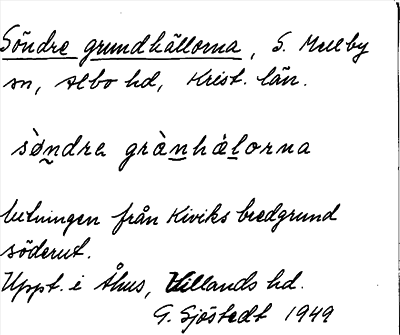 Söndre grundkällorna, S. Mellby
sn, Albo hd, Krist. län.
sø̀ndra grànhälorna
betningen från Kiviks bredgrund
söderut.
Uppt. i Åhus, Villands hd.
G. Sjöstedt 1949